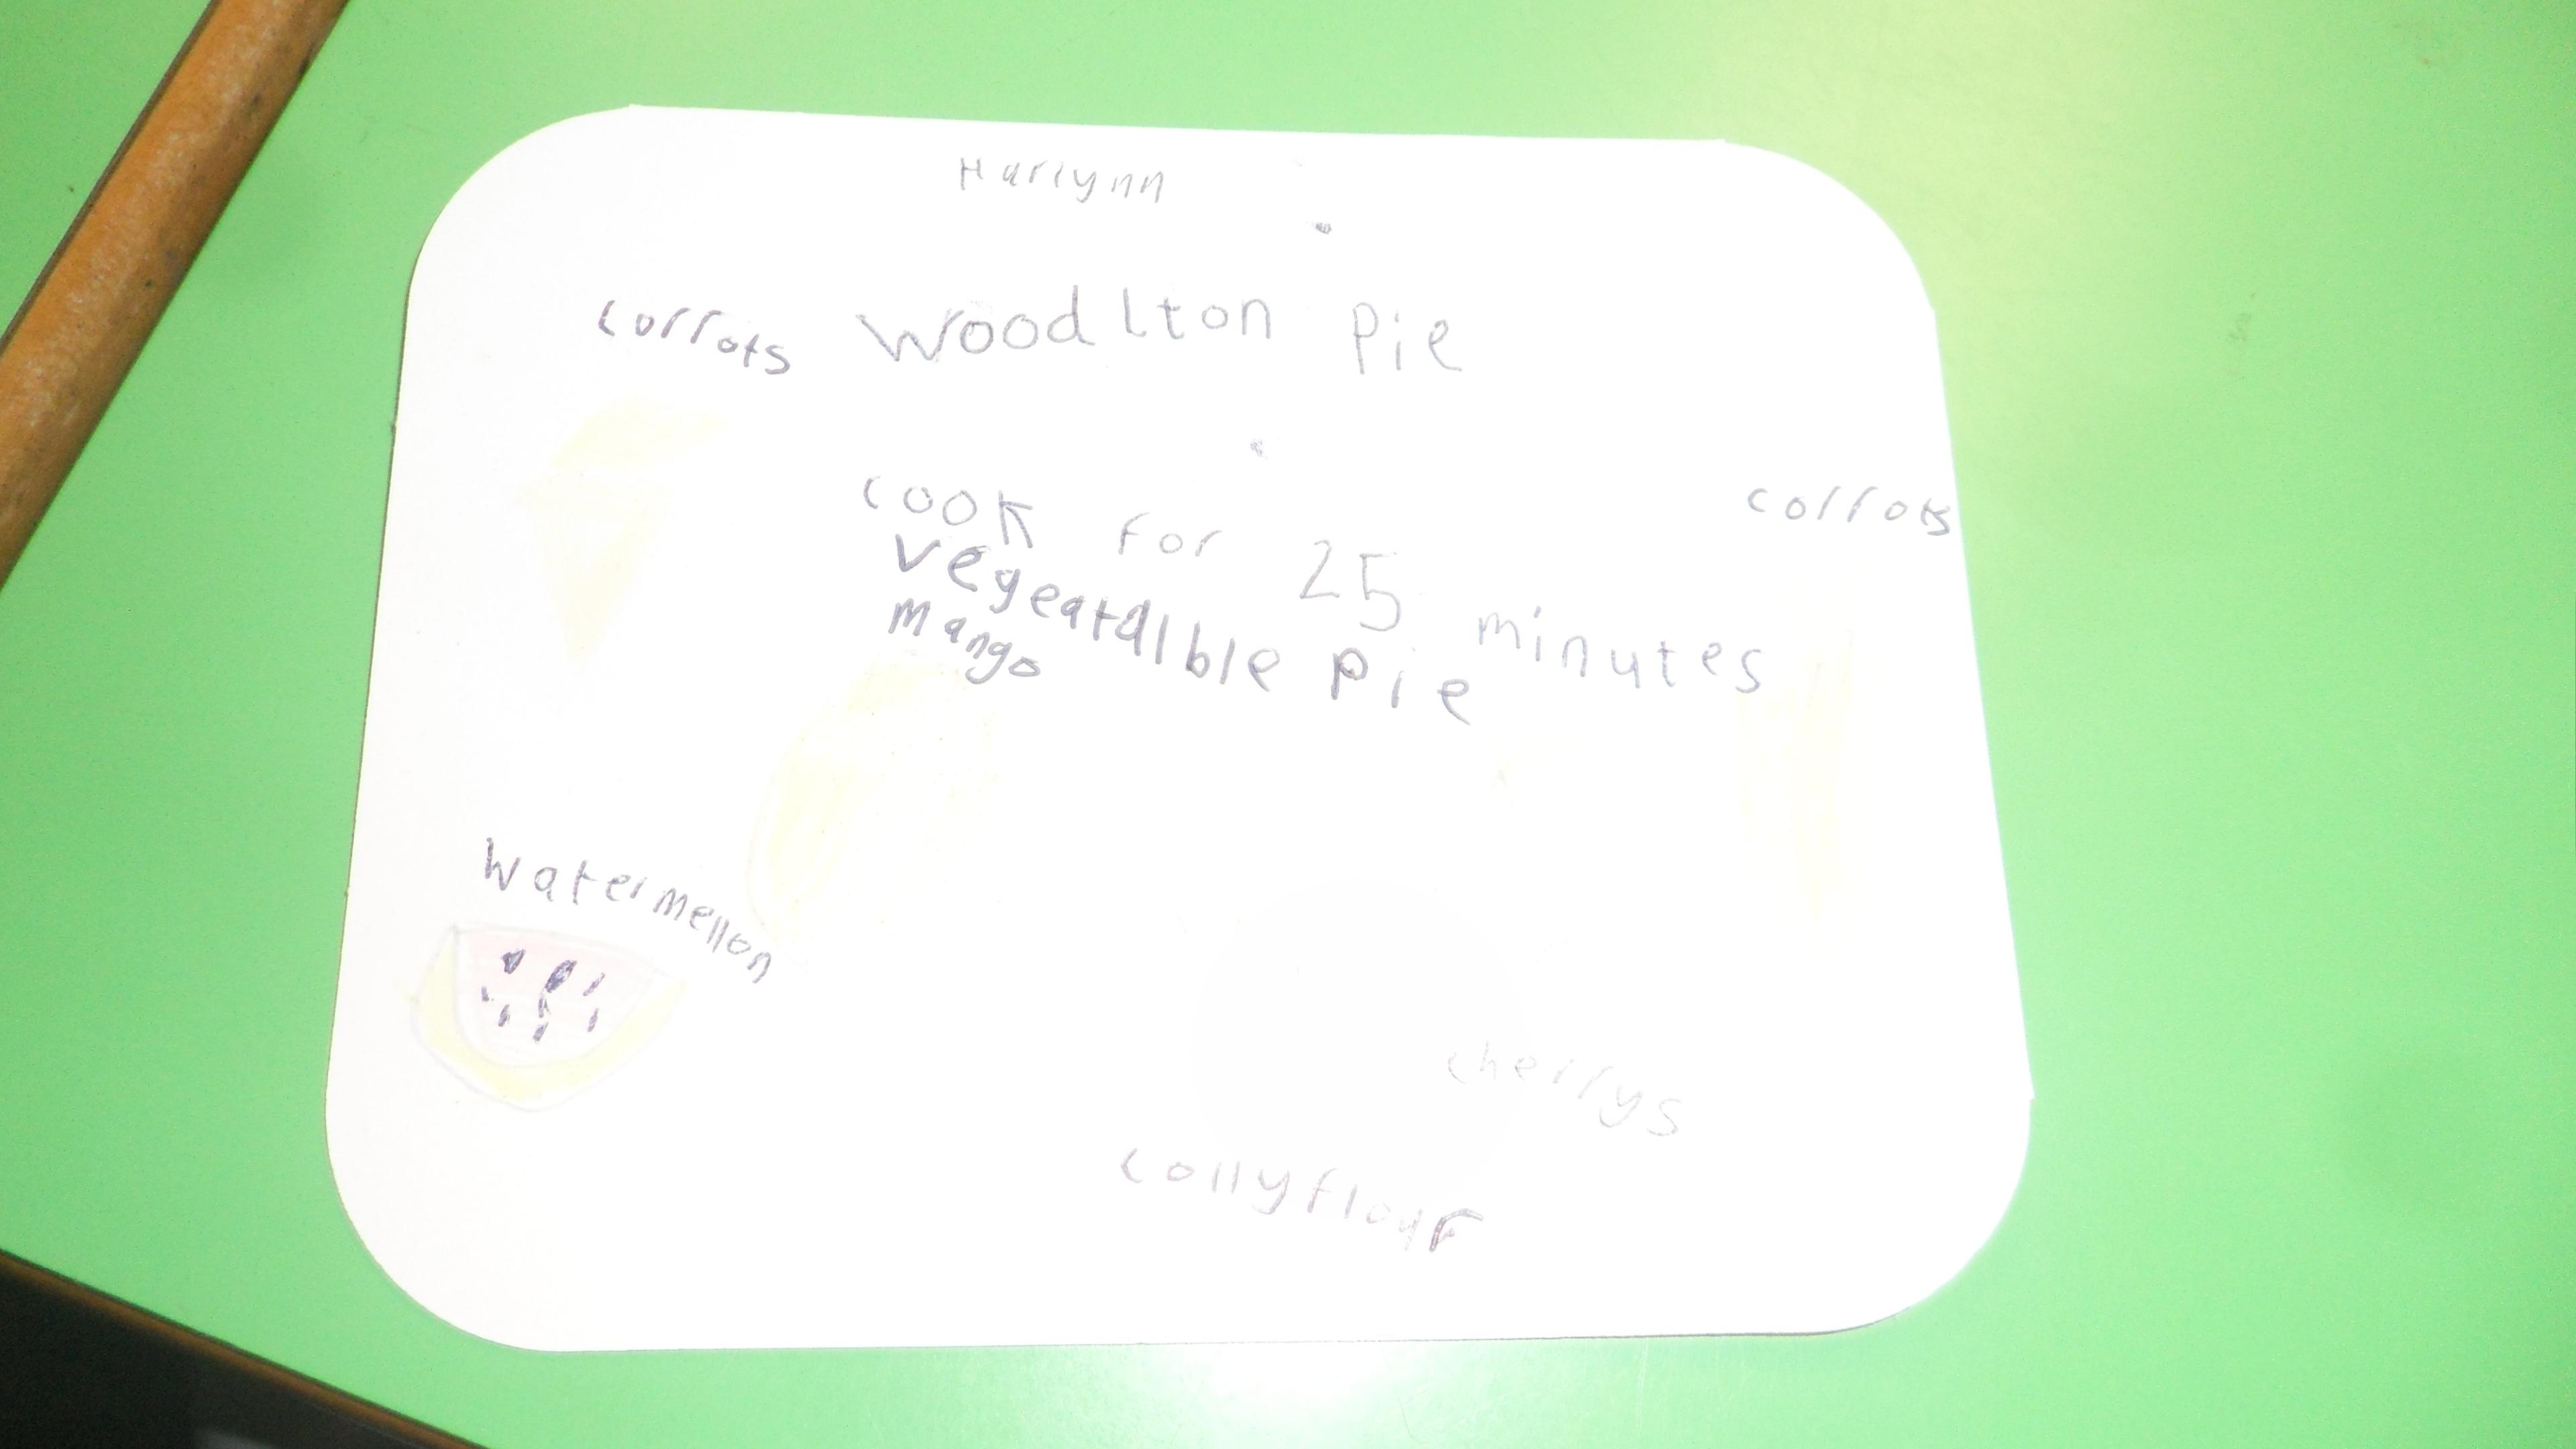 Harlynn
corrots Woodlton Pie
cook for 25 minutes
corrots
vegeatalble pie
mango
watermellon
cherrys
collyflour